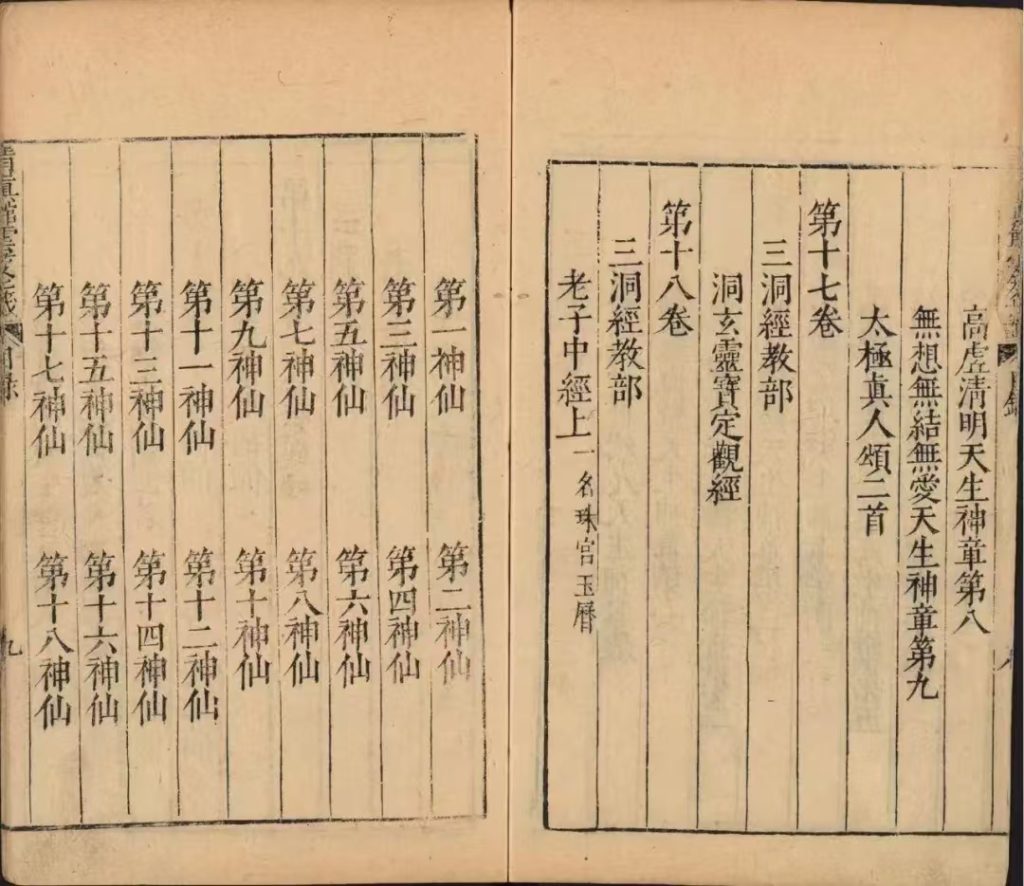 高虛清明天生神章第八
無想無結無愛天生神章第九
太極眞人頌二首
第十七卷
三洞經教部
洞玄靈寶定觀經
第十八卷
三洞經教部
老子中經上一名珠宮玉曆
第一神仙 第二神仙
第三神仙 第四神仙
第五神仙 第六神仙
第七神仙 第八神仙
第九神仙 第十神仙
第十一神仙 第十二神仙
第十三神仙 第十四神仙
第十五神仙 第十六神仙
第十七神仙 第十八神仙
目錄
九